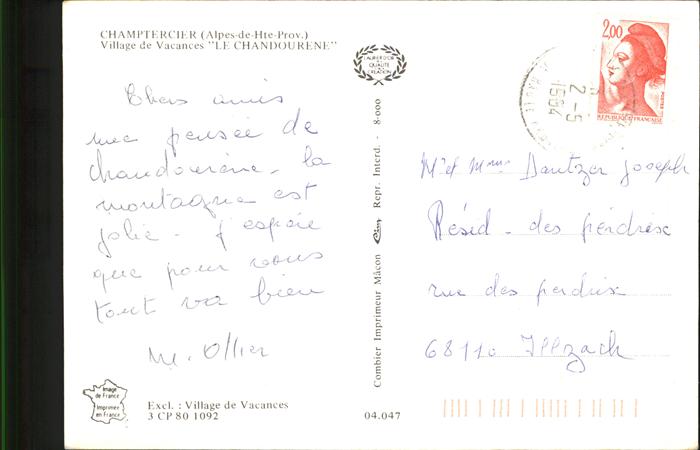 CHAMPTERCIER (Alpes-de-Hte-Prov.)
Village de Vacances "LE CHANDOURENE"
Chers amis
une pensée de
chandourène. la
montagne est
jolie. j'espère
que pour vous
tout va bien
M. Ollier
Image
de France
Imprimée
en France
Excl. : Village de Vacances
3 CP 80 1092
04.047
LAURIER D'OR
DE LA
QUALITE
CREATION
Combier Imprimeur Mâcon Cim Repr. Interd. - 8-000
2-5
1984
2,00
POSTES
REPUBLIQUE FRANÇAISE
Mr et Mme Dantzer Joseph
Résid. des perdrix
rue des perdrix
68110 Illzach